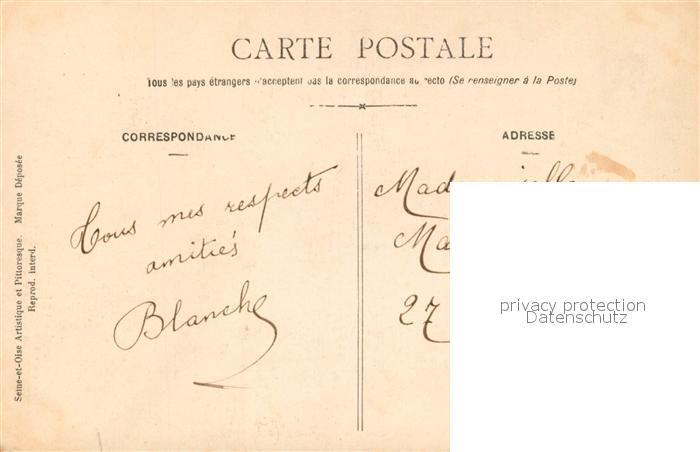 CARTE POSTALE
Tous les pays étrangers n'acceptent pas la correspondance au recto (Se renseigner á la Poste)
CORRESPONDANCE
Tous mes respects
amitiés
Blanche
ADRESSE
Mad
Ma
27
privacy protection
Datenschutz
Seine-et-Oise Artistique et Pittoresque. Marque Déposée
Reprod. interd.